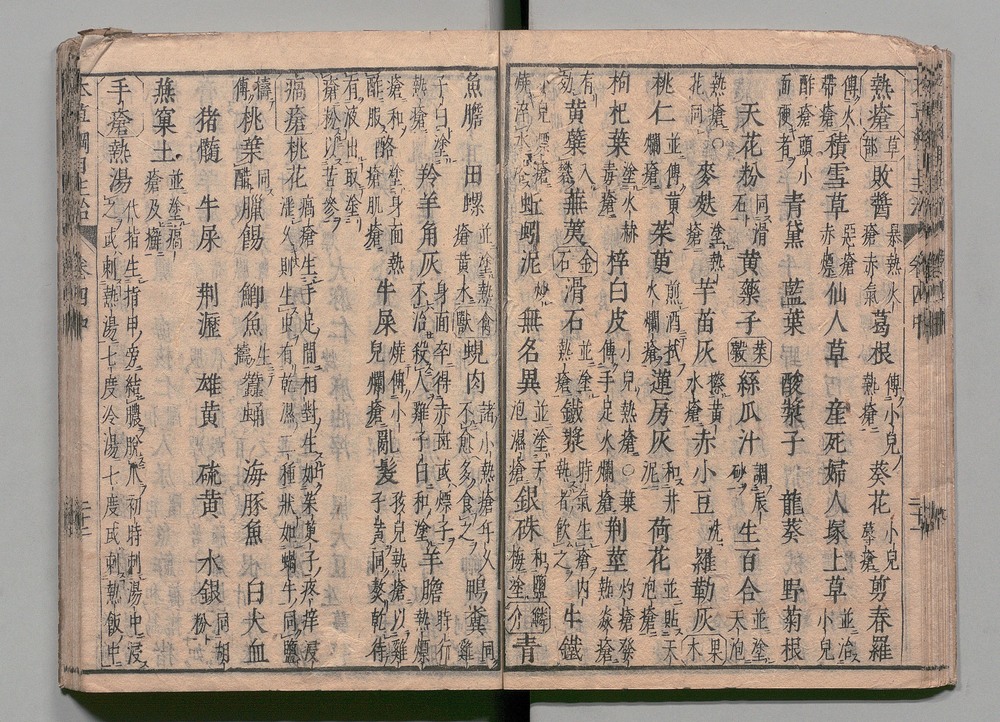 熱瘡 草部 敗醬 暴熱火瘡赤氣 葛根 傅小兒熱瘡 葵花 小兒蓐瘡 剪春羅
傅火帶瘡 積雪草 惡瘡赤熛 仙人草 産死婦人塚上草 並治小兒
酢瘡頭小面硬者 青黛 藍葉 酸漿子 龍葵 野菊根
天花粉 同滑石 黄藥子 菜穀 絲瓜汁 調辰砂 生百合 並塗天泡
熱瘡○花同 麥麩 塗熱瘡 芋苗灰 擦黄水瘡 赤小豆 洗 羅勒灰 果木
桃仁 並傅黄爛瘡 茱萸 煎酒拭火爛瘡 蓮房灰 和井泥 荷花 並貼天泡瘡
枸杞葉 塗火赫毒瘡 梓白皮 小兒熱瘡○葉傅手足火爛瘡 荆莖 灼瘡發熱焱瘡
有效 黄蘗 入矾 蕪荑 金石 滑石 並塗熱瘡 鐵漿 時氣生瘡内熱者飲之 牛鐵
小兒 蚯蚓泥 炒 無名異 並塗天泡濕瘡 銀硃 和鹽梅塗 鱗介 青
魚膽 田螺 並塗熱瘡 禽獸 蜆肉 諸小熱瘡年久不愈多食之 鴨糞 同雞
子白塗熱瘡 羚羊角灰 身面卒得赤斑或熛子不治殺人雞子白和塗 羊膽 時行熱熛
瘡和酢服 酪 塗身面熱瘡肌瘡 牛屎 燒傅小兒爛瘡 亂髮 孩兒熱瘡以雞子黄同熬乾待
有液出取塗瘡粉以苦參
瘑瘡 桃花 瘑瘡生手足間相對生如茱萸子疼痒浸淫久則生虫有乾濕二種狀如蝸牛同鹽
擣傅 桃葉 同醋 臘餳 鯽魚 生擣 蠶蛹 海豚魚 白犬血
猪髓 牛屎 荆瀝 雄黄 硫黄 水銀 同胡粉
燕窠土 並塗瘑瘡及癬
手瘡 熱湯 代指生指甲旁結膿脫爪初時刺湯中浸之或刺熱湯七度冷湯七度或刺熱飯中